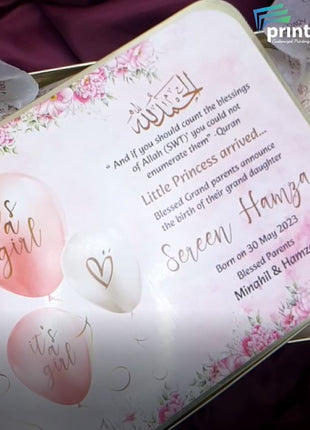 print
Customized Printing
الحمد لله
" And if you should count the blessings
of Allah (SWT)' you could not
enumerate them" -Quran
Little Princess arrived...
Blessed Grand parents announce
the birth of their grand daughter
Sereen Hamza
Born on 30 May 2023
Blessed Parents
Minahil & Hamza
it's
a
girl
it's a
girl